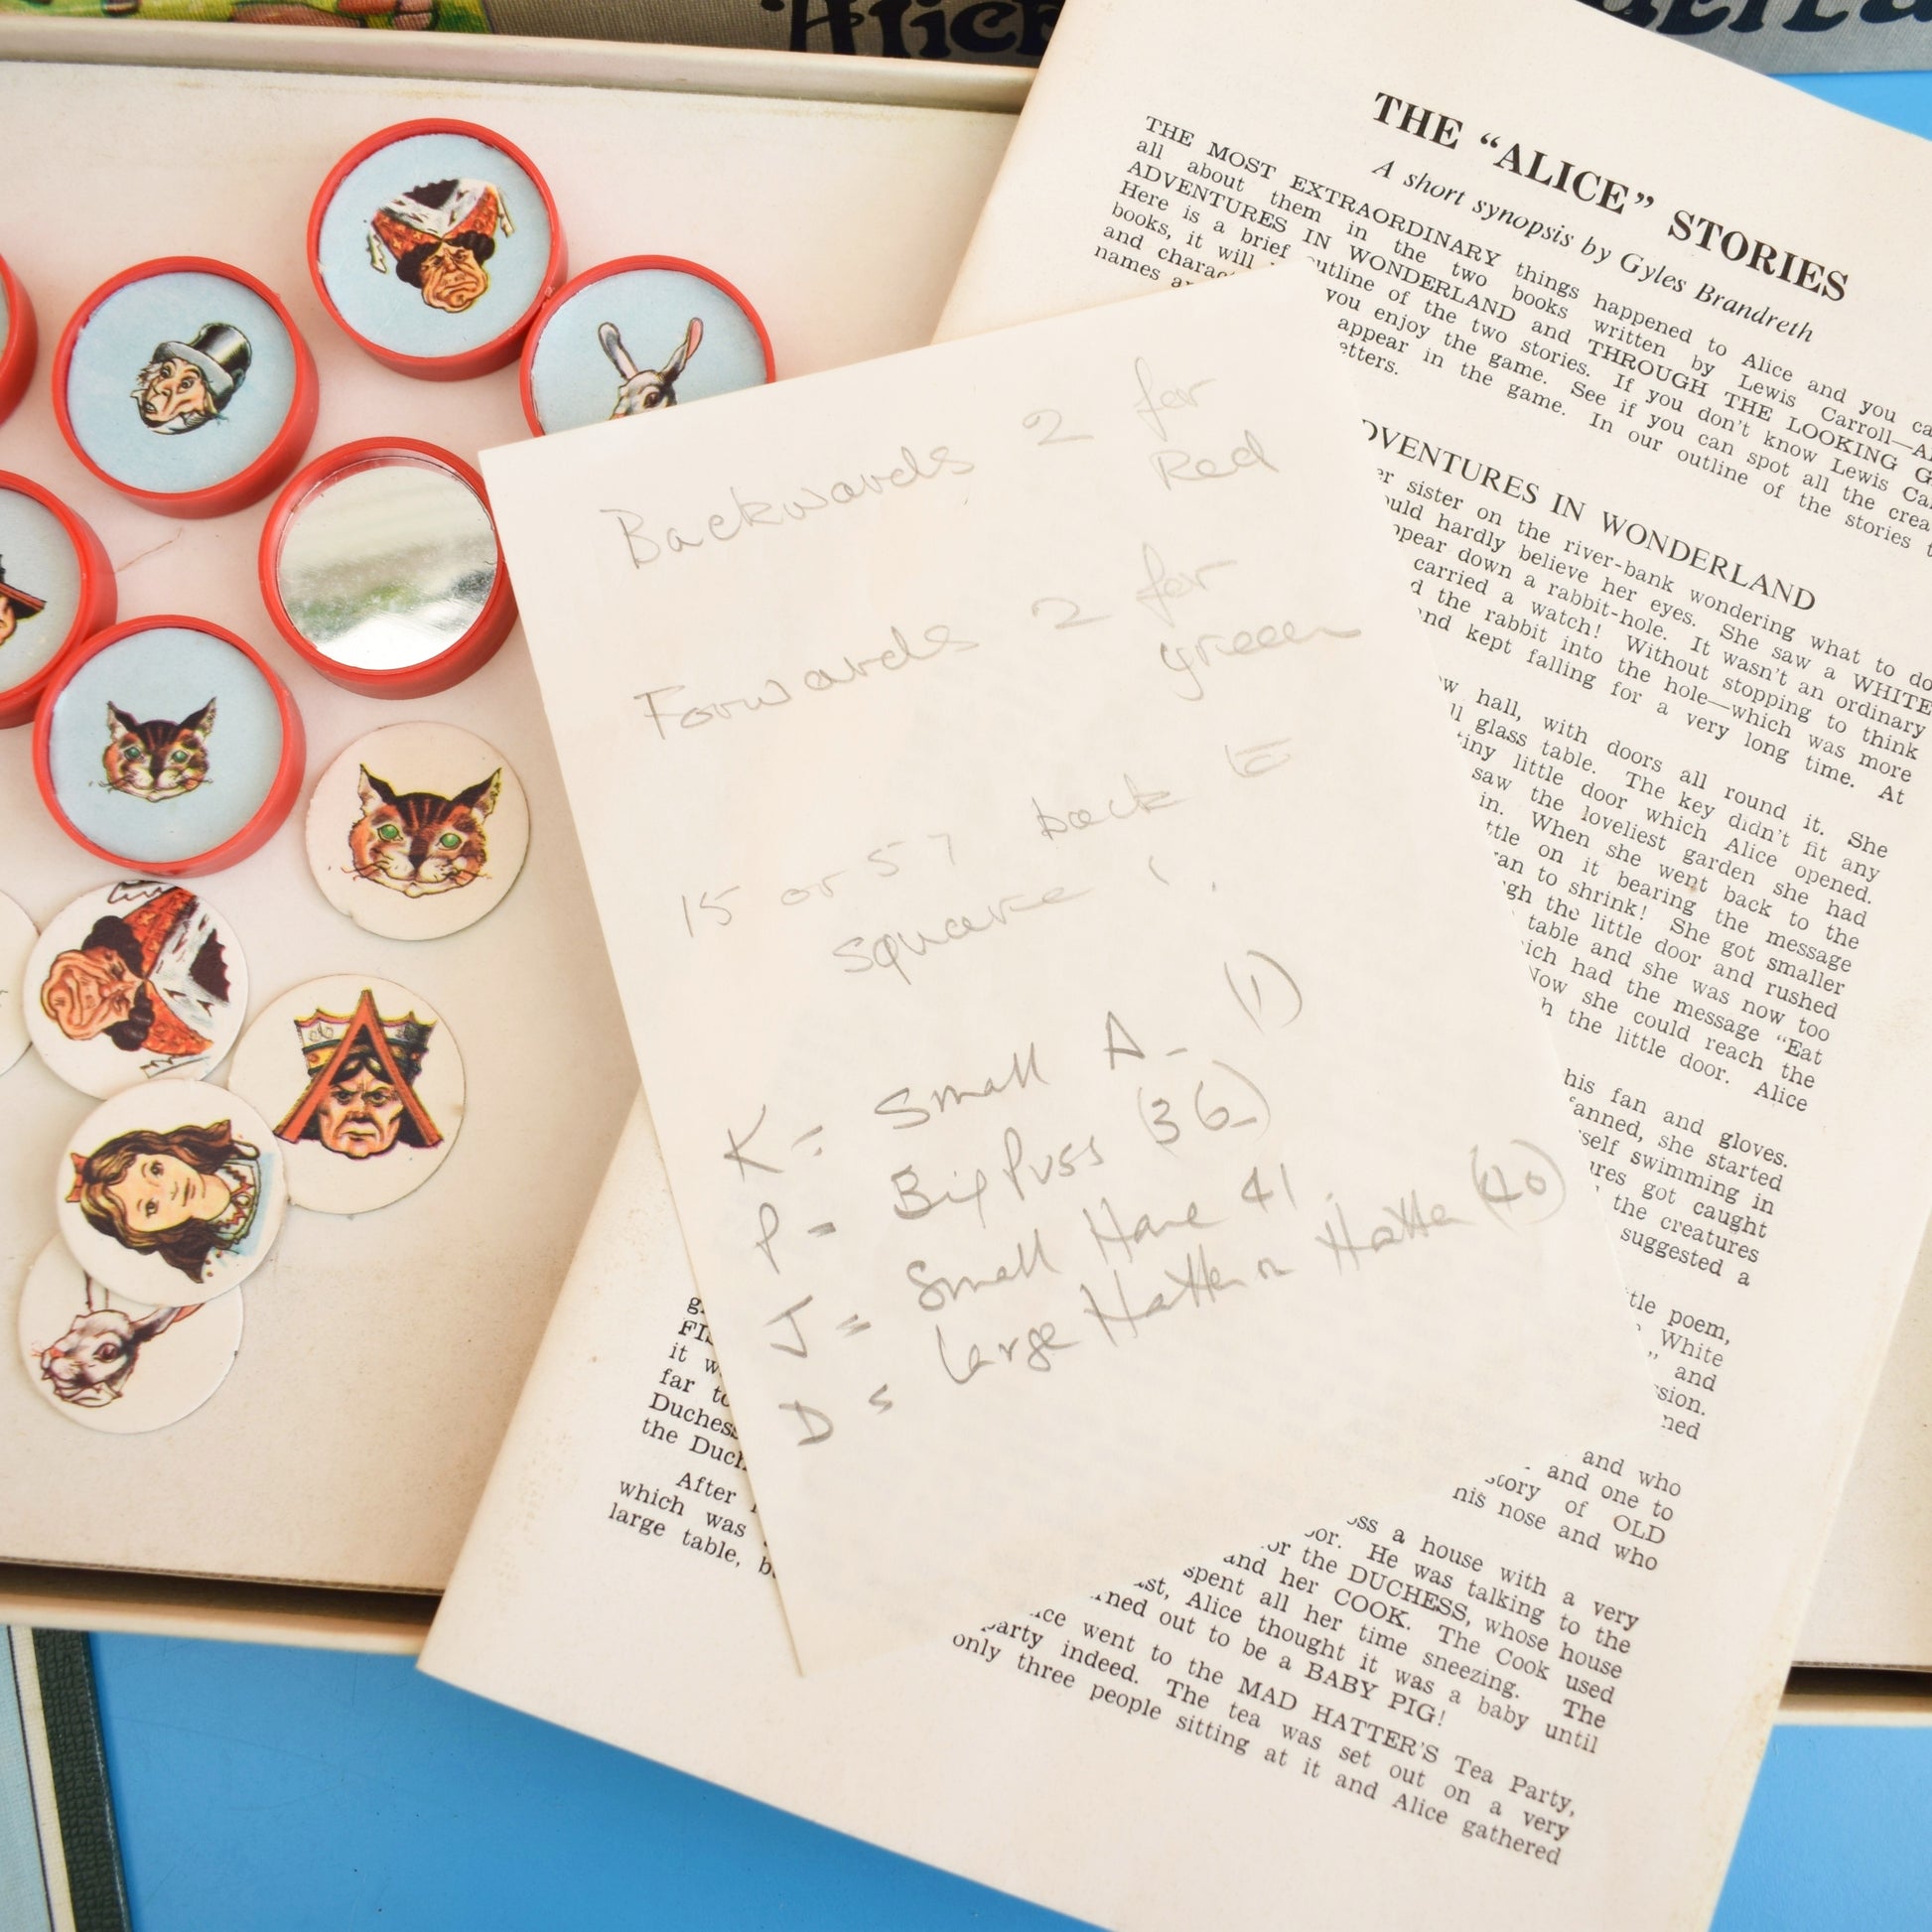 Alice
THE “ALICE” STORIES
A short synopsis by Gyles Brandreth
THE MOST EXTRAORDINARY things happened to Alice and you
all about them in the two books written by Lewis Carroll—
ADVENTURES IN WONDERLAND and THROUGH THE LOOKING
Here is a brief outline of the two stories. If you don't know Lewis
books, it will you enjoy the game. See if you can spot all the
and appear in the game. In our outline of the stories
names
ADVENTURES IN WONDERLAND
sister on the river-bank wondering what to do
hardly believe her eyes. She saw a WHITE
down a rabbit-hole. It wasn't an ordinary
carried a watch! Without stopping to think
the rabbit into the hole—which was more
and kept falling for a very long time. At
hall, with doors all round it. She
glass table. The key didn't fit any
tiny little door which Alice opened.
saw the loveliest garden she had
in. When she went back to the
on it bearing the message
to shrink! She got smaller
the little door and rushed
table and she was now too
had the message “Eat
Now she could reach the
the little door. Alice
his fan and gloves.
fanned, she started
swimming in
got caught
the creatures
suggested a
poem,
White
” and
and who
and one to
story of OLD
his nose and who
a house with a very
He was talking to the
the DUCHESS, whose house
and her COOK. The Cook used
spent all her time sneezing. The
Alice thought it was a baby until
out to be a BABY PIG!
went to the MAD HATTER'S Tea Party,
indeed. The tea was set out on a very
only three people sitting at it and Alice gathered
Backwards 2 for
Red
Forwards 2 for
green
15 or 57 back to
square 1.
K = Small A - (1)
P = Big Puss (36)
J = Small Hare 41
D = Large Hatter Hatter (40)
it
far to
Duchess
the
After
which was
large table,